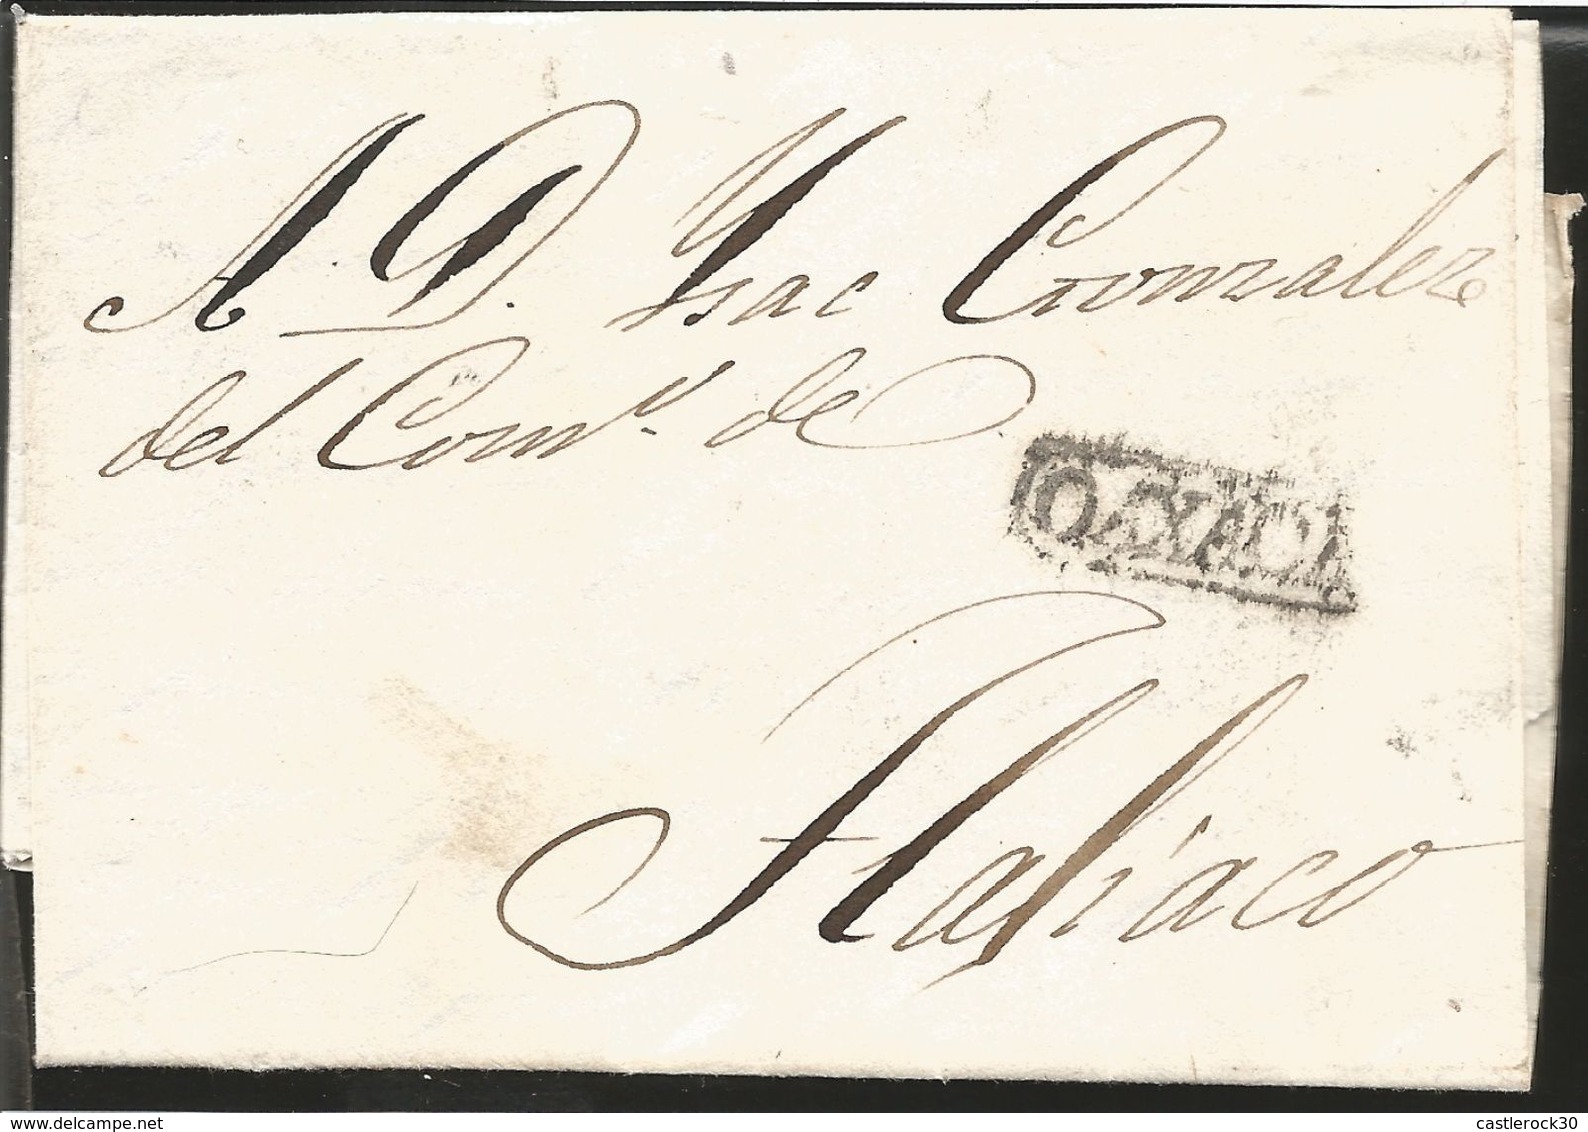 A D. Ysac Gonzalez
del Comº. de
OAXACA
Tlapiaco
www.delcampe.net
castlerock30